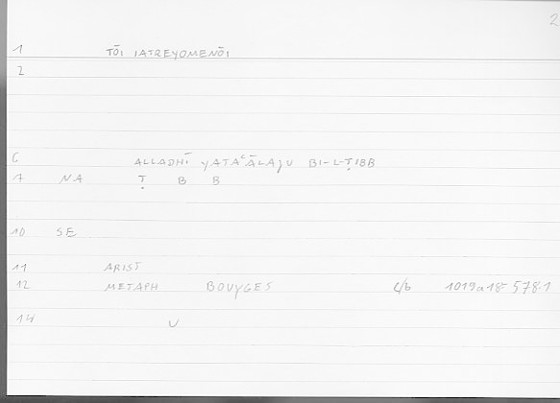 2
1 TŌI IATREYOMENŌI
2
6 ALLADHĪ YATAʿĀLAJU BI-L-ṬIBB
7 NA Ṭ B B
10 SE
11 ARIST
12 METAPH BOUYGES 4/6 1019a18 578.1
14 U